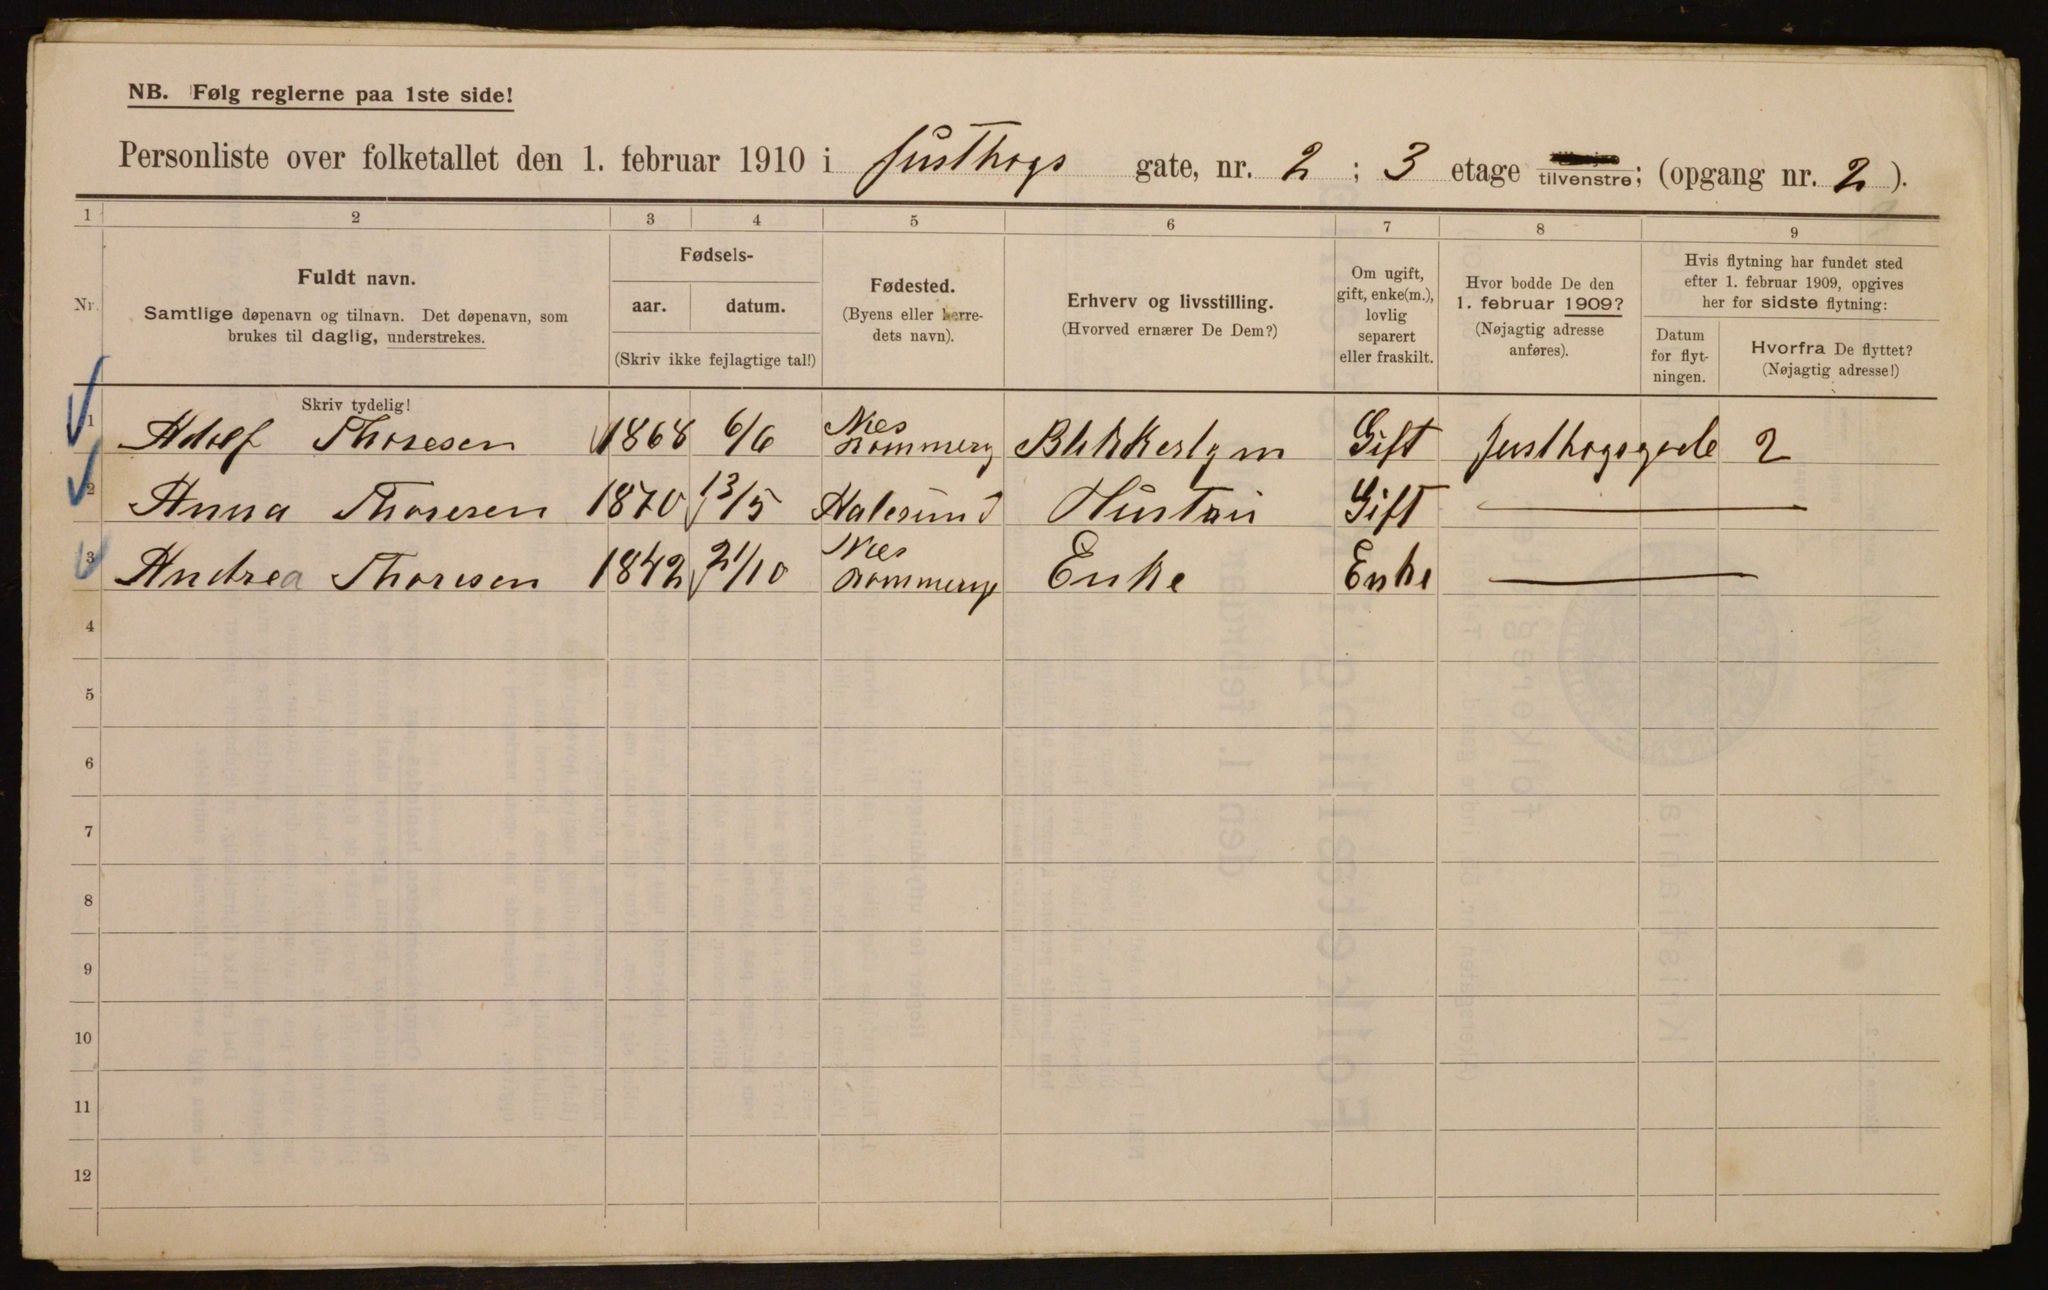 NB. Følg reglerne paa 1ste side!
Personliste over folketallet den 1. februar 1910 i Justhogs gate, nr. 2 ; 3 etage tilvenstre; (opgang nr. 2 ).
1 2 3 4 5 6 7 8 9
Nr.
Fuldt navn.
Samtlige døpenavn og tilnavn. Det døpenavn, som
brukes til daglig, understrekes.
Fødsels-
aar. datum.
(Skriv ikke fejlagtige tal!)
Fødested.
(Byens eller herre-
dets navn).
Erhverv og livsstilling.
(Hvorved ernærer De Dem?)
Om ugift,
gift, enke(m.),
lovlig
separert
eller fraskilt.
Hvor bodde De den
1. februar 1909?
(Nøjagtig adresse
anføres).
Hvis flytning har fundet sted
efter 1. februar 1909, opgives
her for sidste flytning:
Datum
for flyt-
ningen.
Hvorfra De flyttet?
(Nøjagtig adresse!)
Skriv tydelig!
1 Adolf Thoresen 1868 6/6 Nes Gift Justhogsgade 2
2 Anna Thoresen 1870 13/5 Halesund Hustru Gift
3 Andrea Thoresen 1842 21/10 Nes Enke Enke
4
5
6
7
8
9
10
11
12